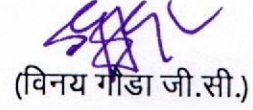 (विनय गौडा जी.सी.)